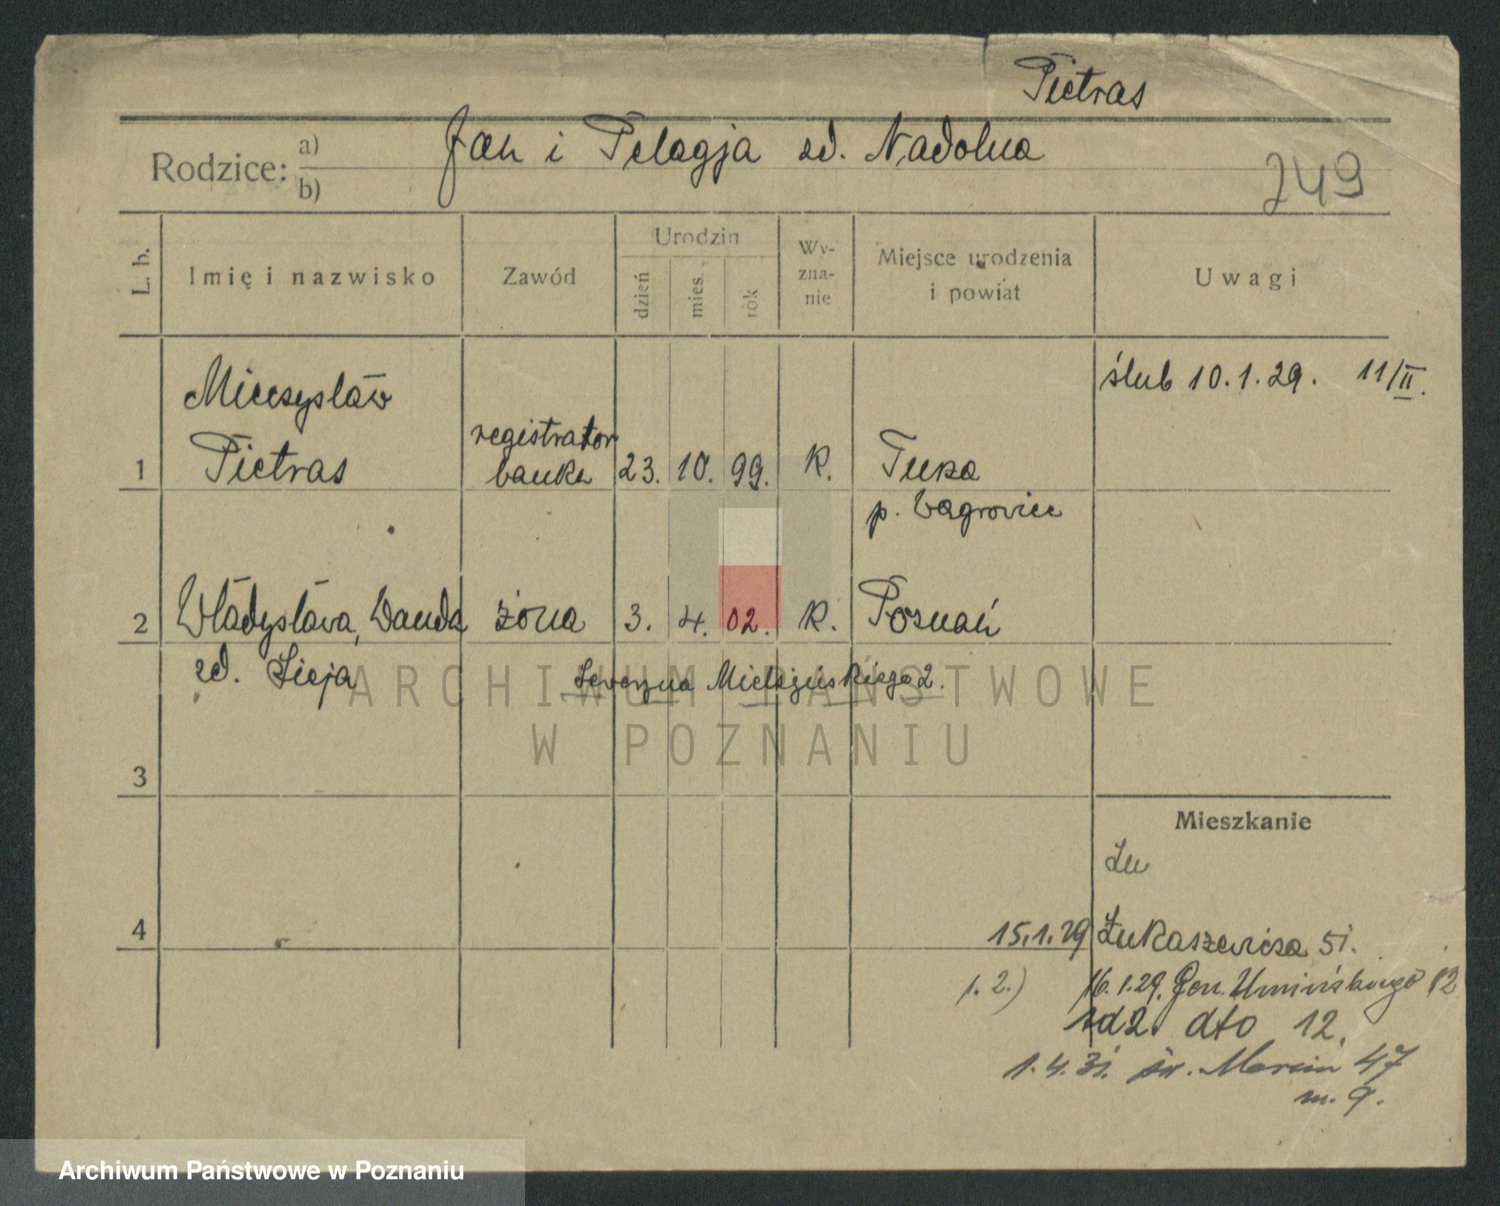 Pietras
Rodzice: a) Jan i Pelagja zd. Nadolna
b)
249
L. b.
Imię i nazwisko
Zawód
Urodzin
dzień
mies.
rok
Wy-
zna-
nie
Miejsce urodzenia
i powiat
Uwagi
1
Mieczysław
Pietras
registrator
banku
23. 10. 99.
R.
p. Wągrowiec
ślub 10.1.29. 11/II.
2
Władysława, Wanda
zd.
żona
3. 4. 02.
R.
Poznań
Seweryna Mielżyńskiego 2.
3
4
Mieszkanie
Łu
15.1.29 Łukaszewicza 51.
1.2.) 16.1.29. Gen. Umińskiego 12
dto 12.
1.4.31. św. Marcin 47
m. 9.
ARCHIWUM PAŃSTWOWE
W POZNANIU
Archiwum Państwowe w Poznaniu